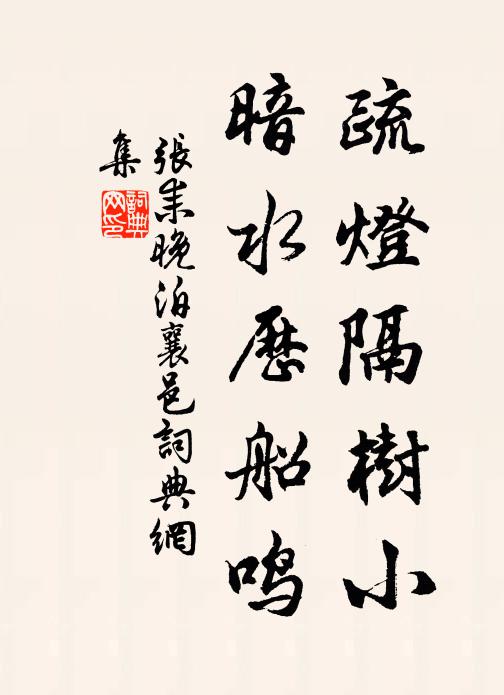 疏燈隔樹小
暗水歷船鳴
張耒晚泊襄邑詞典網
集
詞典網印